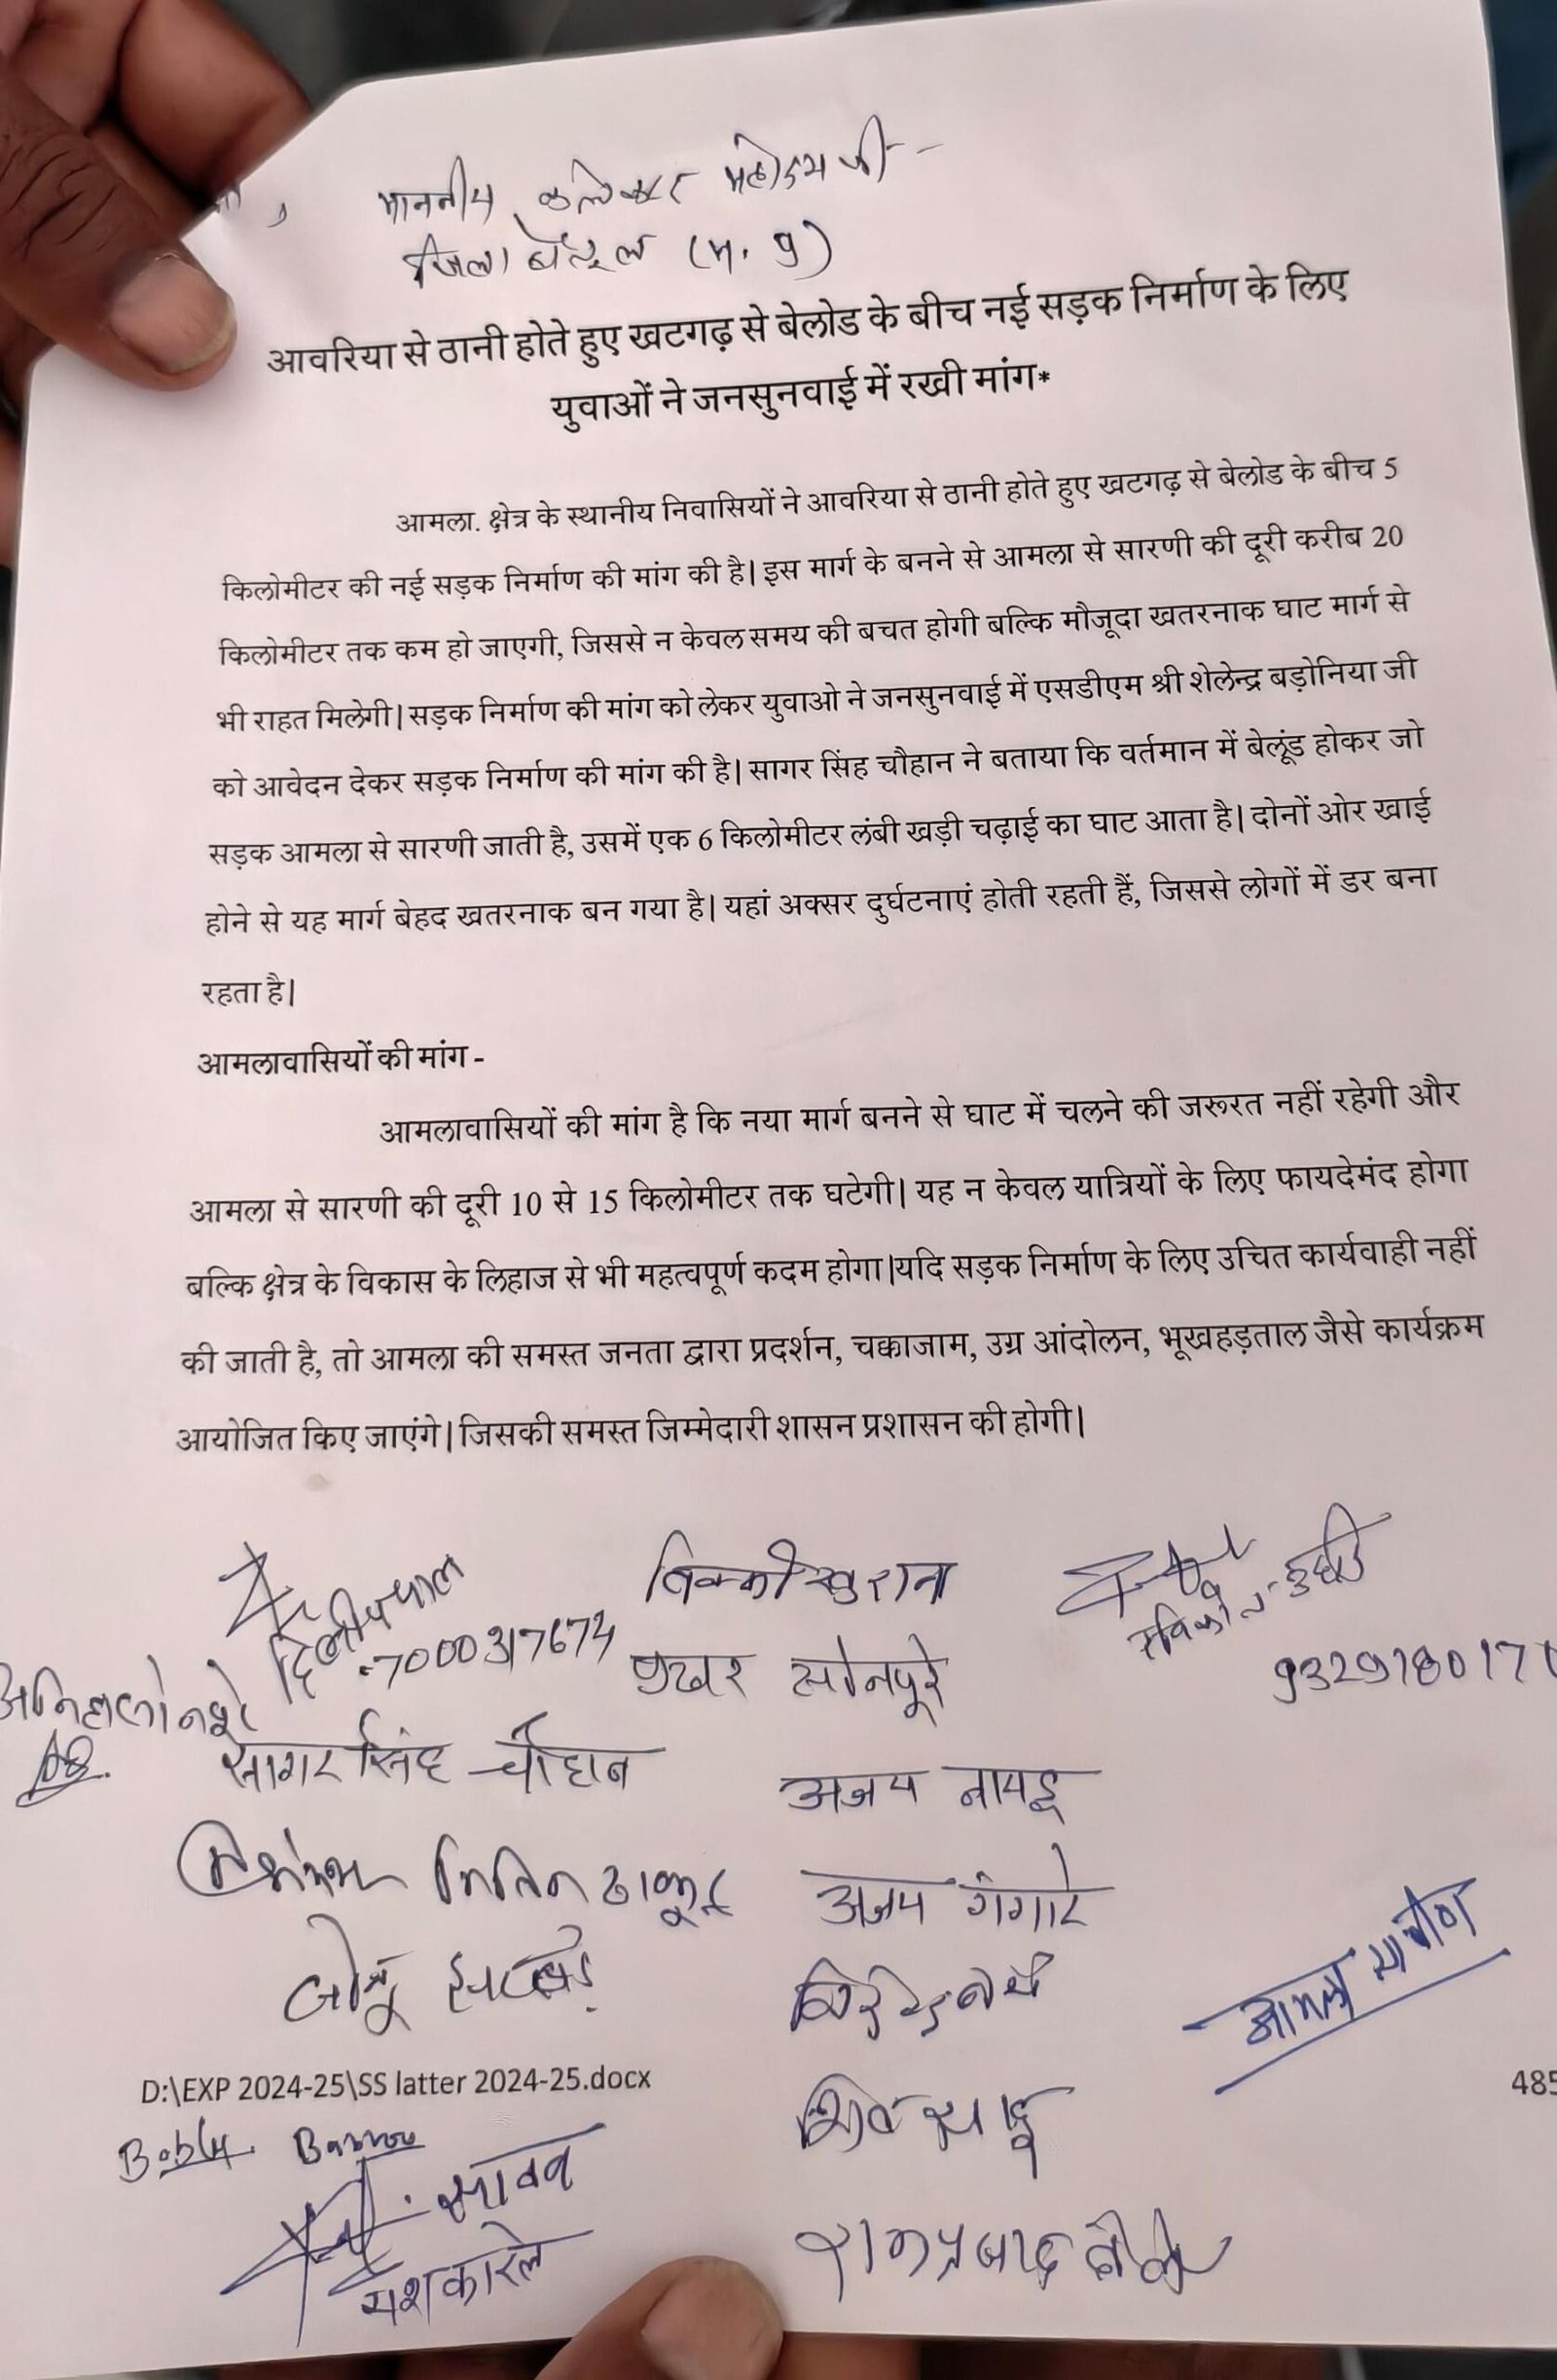 माननीय कलेक्टर महोदय जी -
जिला बैतूल (म. प्र)
आवरिया से ठानी होते हुए खटगढ़ से बेलोड के बीच नई सड़क निर्माण के लिए
युवाओं ने जनसुनवाई में रखी मांग*
आमला. क्षेत्र के स्थानीय निवासियों ने आवरिया से ठानी होते हुए खटगढ़ से बेलोड के बीच 5
किलोमीटर की नई सड़क निर्माण की मांग की है| इस मार्ग के बनने से आमला से सारणी की दूरी करीब 20
किलोमीटर तक कम हो जाएगी, जिससे न केवल समय की बचत होगी बल्कि मौजूदा खतरनाक घाट मार्ग से
भी राहत मिलेगी| सड़क निर्माण की मांग को लेकर युवाओ ने जनसुनवाई में एसडीएम श्री शेलेन्द्र बड़ोनिया जी
को आवेदन देकर सड़क निर्माण की मांग की है| सागर सिंह चौहान ने बताया कि वर्तमान में बेलूंड होकर जो
सड़क आमला से सारणी जाती है, उसमें एक 6 किलोमीटर लंबी खड़ी चढ़ाई का घाट आता है| दोनों ओर खाई
होने से यह मार्ग बेहद खतरनाक बन गया है| यहां अक्सर दुर्घटनाएं होती रहती हैं, जिससे लोगों में डर बना
रहता है|
आमलावासियों की मांग -
आमलावासियों की मांग है कि नया मार्ग बनने से घाट में चलने की जरूरत नहीं रहेगी और
आमला से सारणी की दूरी 10 से 15 किलोमीटर तक घटेगी| यह न केवल यात्रियों के लिए फायदेमंद होगा
बल्कि क्षेत्र के विकास के लिहाज से भी महत्वपूर्ण कदम होगा|यदि सड़क निर्माण के लिए उचित कार्यवाही नहीं
की जाती है, तो आमला की समस्त जनता द्वारा प्रदर्शन, चक्काजाम, उग्र आंदोलन, भूखहड़ताल जैसे कार्यक्रम
आयोजित किए जाएंगे| जिसकी समस्त जिम्मेदारी शासन प्रशासन की होगी|
विक्की खुराना
दिलीप पाल
7000317674
प्रखर सोनपूरे
932978017
सागर सिंह चौहान
अजय नायडू
नितिन ठाकुर
अजय गंगारे
D:\EXP 2024-25\SS latter 2024-25.docx
485
सावन
यश कारले